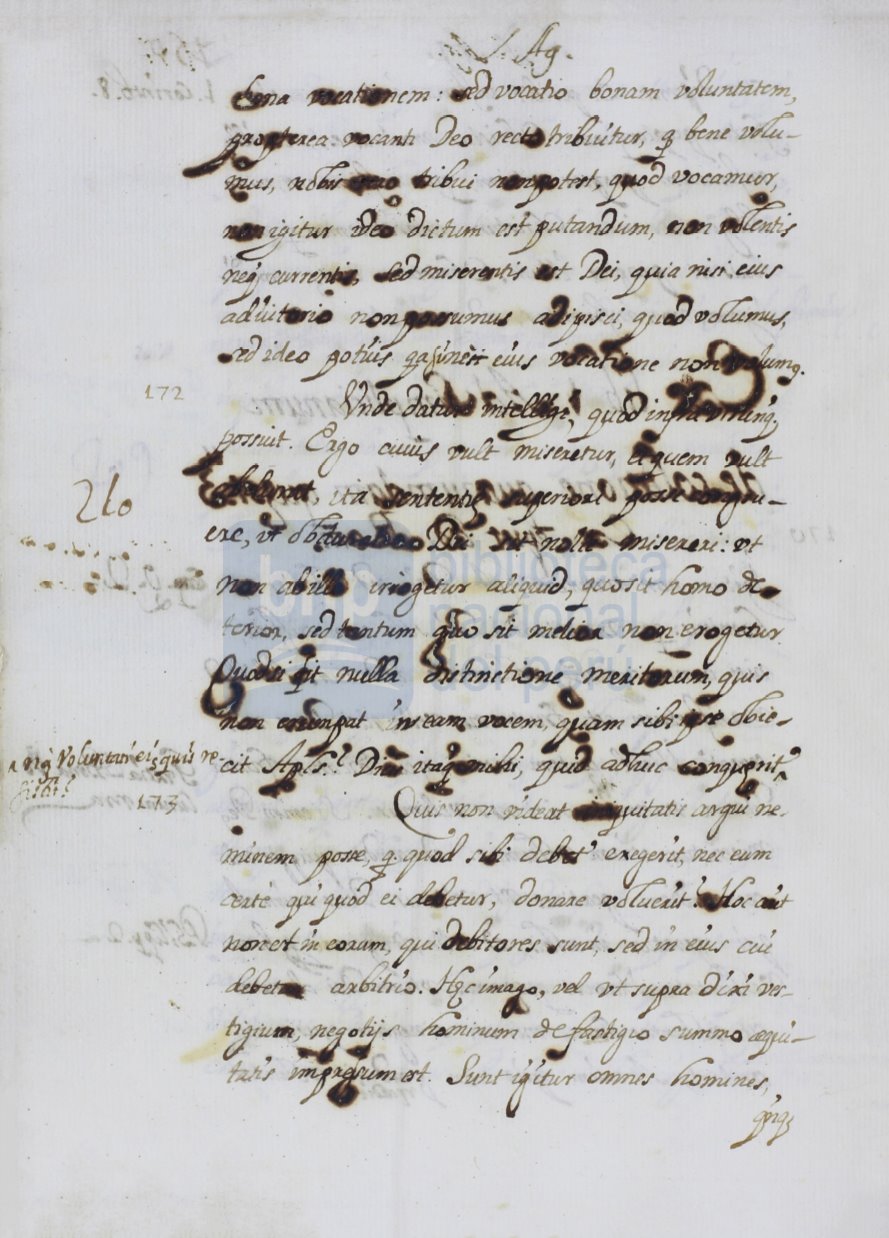 S. Ag.
bona vocationem: sed vocatio bonam voluntatem,
propterea vocanti Deo recte tribuitur, q bene volu-
mus, nobis vero tribui non potest, quod vocamur,
non igitur ideo dictum est putandum, non volentis
neq currentis, sed miserentis est Dei, quia nisi eius
adiutorio non possumus adipisci, quod volumus,
sed ideo potius, eius vocatione non volumq.
172
Unde datur intelligi, quod infra
possuit. Ergo cuius vult miseretur, et quem vult
obdurat, ita sententiæ superiori posse congru-
210
ere, vt obduratio Dei sit nolle misereri: vt
non ab illo irrogetur aliquid, quo sit homo de-
terior, sed tantum quo sit melior non erogetur
Quod si fit nulla distinctione meritorum, quis
non erumpat in eam vocem, quam sibi ipse obie-
cit Apls? Dicis itaq mihi, quid adhuc conqueritr
^ nã voluntati eiq quis re-
sistit?
173
Quis non videat iniquitatis argui ne-
minem posse, q quod sibi debetr exegerit, nec eum
certè qui quod ei debetur, donare voluerit? Hoc aut
non est in eorum, qui debitores sunt, sed in eius cui
debetur arbitrio. Hęc imago, vel vt supra dixi ves-
tigium, negotijs hominum de fastigio summo æqui-
tatis impresum est. Sunt igitur omnes homines,